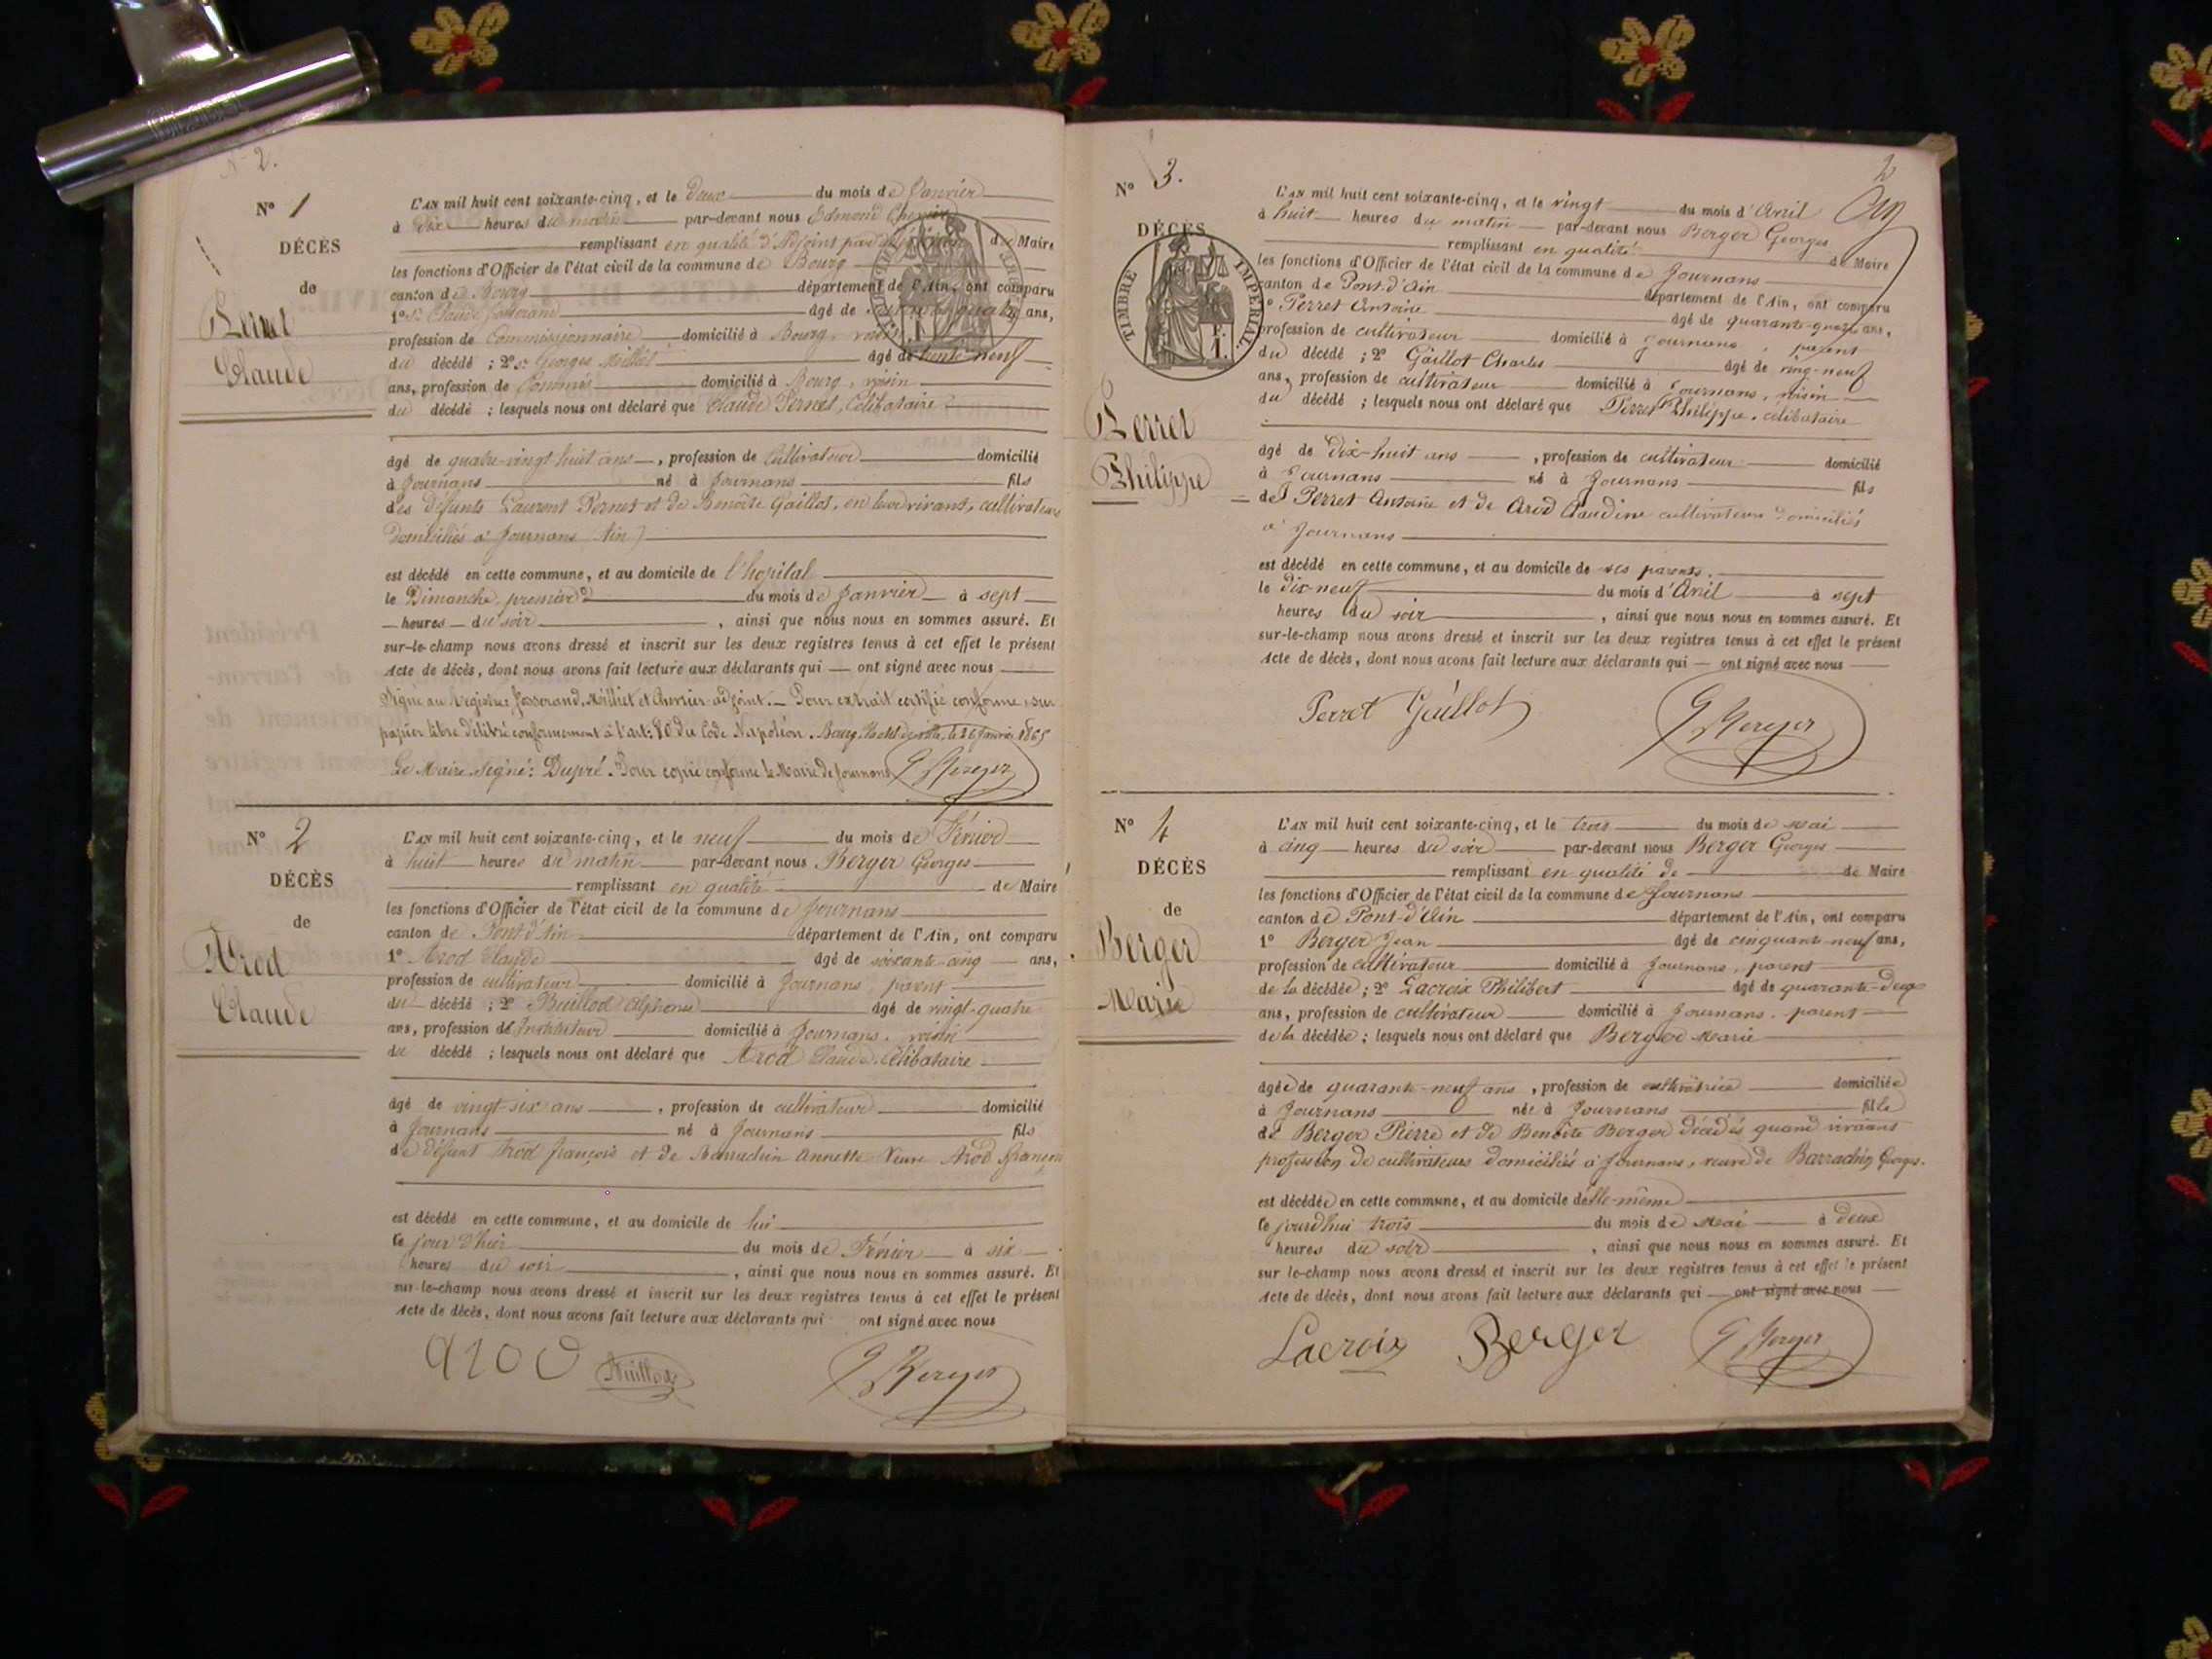 N° 2.
N° 1
DÉCÈS
de
Perret
Claude
L'AN mil huit cent soixante-cinq, et le Deux du mois de Janvier
à Dix heures du matin par-devant nous Edmond Chevrier
remplissant en qualité d'Adjoint par délégation du Maire
les fonctions d'Officier de l'état civil de la commune de Bourg
canton de Bourg département de l'Ain, ont comparu
1° Sr Claude Josserand âgé de ans,
profession de Commissionnaire, domicilié à Bourg, voisin
du décédé ; 2° Sr Georges Milliet âgé de trente-neuf
ans, profession de Économe domicilié à Bourg, voisin
du décédé ; lesquels nous ont déclaré que Claude Pernet, Célibataire
âgé de quatre-vingt huit ans, profession de Cultivateur domicilié
à Journans né à Journans fils
des défunts Laurent Pernet et de Benoîte Gaillot, en leur vivant, cultivateurs
Domiciliés à Journans (Ain)
est décédé en cette commune, et au domicile de l'hopital
le Dimanche, premier du mois de Janvier à sept
heures du soir, ainsi que nous nous en sommes assuré. Et
sur-le-champ nous avons dressé et inscrit sur les deux registres tenus à cet effet le présent
Acte de décès, dont nous avons fait lecture aux déclarants qui — ont signé avec nous
Signé au Registre, Josserand, Milliet et Chevrier adjoint. — Pour extrait certifié conforme, sur
papier libre délivré conformément à l'art: 80 du Code Napoléon. Bourg, Hôtel de ville, le 26 Janvier 1865
Le Maire signé: Dupré. Pour copie conforme le Maire de Journans G Berger
N° 2
DÉCÈS
de
Arod
Claude
L'AN mil huit cent soixante-cinq, et le neuf du mois de Février
à huit heures du matin par-devant nous Berger Georges
remplissant en qualité de Maire
les fonctions d'Officier de l'état civil de la commune de Journans
canton de Pont d'Ain département de l'Ain, ont comparu
1° Arod Claude âgé de soixante-cinq ans,
profession de cultivateur domicilié à Journans, parent
du décédé ; 2° Buillod Alphonse âgé de vingt-quatre
ans, profession de Instituteur domicilié à Journans, voisin
du décédé ; lesquels nous ont déclaré que Arod Claude, célibataire
âgé de vingt-six ans, profession de cultivateur domicilié
à Journans né à Journans fils
de défunt Arod François et de Barrachin Annette Veuve Arod François
est décédé en cette commune, et au domicile de lui
le jour d'hier du mois de Février à six
heures du soir, ainsi que nous nous en sommes assuré. Et
sur-le-champ nous avons dressé et inscrit sur les deux registres tenus à cet effet le présent
Acte de décès, dont nous avons fait lecture aux déclarants qui ont signé avec nous
Arod Buillod G Berger
2
N° 3.
DÉCÈS
TIMBRE IMPERIAL
Perret
Philippe
L'AN mil huit cent soixante-cinq, et le vingt du mois d'Avril
à huit heures du matin par-devant nous Berger Georges
remplissant en qualité de Maire
les fonctions d'Officier de l'état civil de la commune de Journans
canton de Pont-d'Ain département de l'Ain, ont comparu
1° Perret Antoine âgé de quarante-quatre ans,
profession de cultivateur domicilié à Journans, parent
du décédé ; 2° Gaillot Charles âgé de vingt-neuf
ans, profession de cultivateur domicilié à Journans, voisin
du décédé ; lesquels nous ont déclaré que Perret Philippe, célibataire
âgé de Dix-huit ans, profession de cultivateur domicilié
à Journans né à Journans fils
de Perret Antoine et de Arod Claudine cultivateurs domiciliés
à Journans
est décédé en cette commune, et au domicile de ses parents.
le dix-neuf du mois d'Avril à sept
heures du soir, ainsi que nous nous en sommes assuré. Et
sur-le-champ nous avons dressé et inscrit sur les deux registres tenus à cet effet le présent
Acte de décès, dont nous avons fait lecture aux déclarants qui — ont signé avec nous
Perret Gaillot G Berger
N° 4
DÉCÈS
de
Berger
Marie
L'AN mil huit cent soixante-cinq, et le trois du mois de Mai
à cinq heures du soir par-devant nous Berger Georges
remplissant en qualité de de Maire
les fonctions d'Officier de l'état civil de la commune de Journans
canton de Pont-d'Ain département de l'Ain, ont comparu
1° Berger Jean âgé de cinquante-neuf ans,
profession de cultivateur domicilié à Journans, parent
de la décédée ; 2° Lacroix Philibert âgé de quarante-deux
ans, profession de cultivateur domicilié à Journans, parent
de la décédée ; lesquels nous ont déclaré que Berger Marie
âgée de quarante-neuf ans, profession de cultivatrice domiciliée
à Journans née à Journans fille
de Berger Pierre et de Benoîte Berger décédés quand vivaant
profession de cultivateurs domiciliés à Journans, veuve de Barrachin Georges.
est décédée en cette commune, et au domicile d'elle-même
le jourd'hui trois du mois de Mai à deux
heures du soir, ainsi que nous nous en sommes assuré. Et
sur-le-champ nous avons dressé et inscrit sur les deux registres tenus à cet effet le présent
Acte de décès, dont nous avons fait lecture aux déclarants qui — ont signé avec nous
Lacroix Berger G Berger